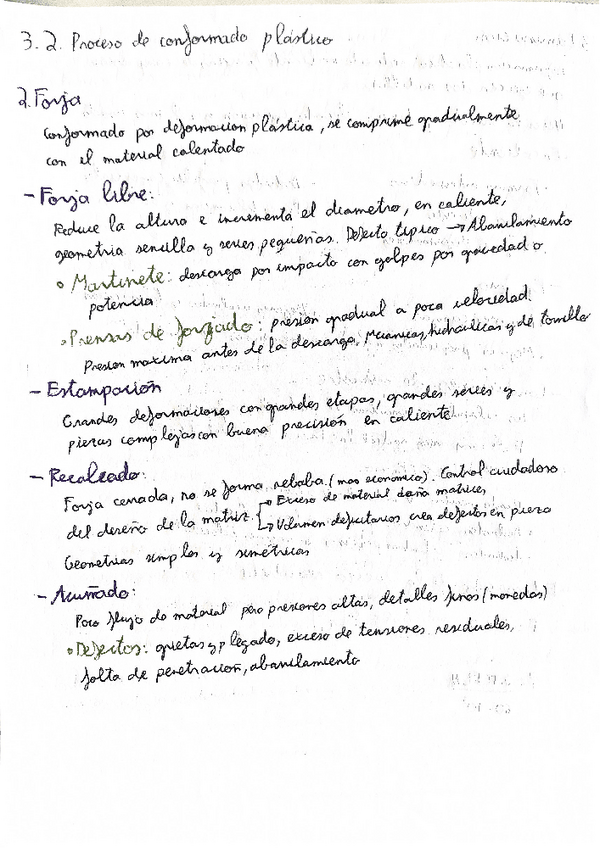 3.2. Proceso de conformado plástico
2. Forja
Conformado por deformacion plástica, se comprime gradualmente
con el material calentado
- Forja libre:
Reduce la altura e incrementa el diametro, en caliente,
geometria sencilla y series pequeñas. Defecto tipico → Abarilamiento
• Martinete: descarga por impacto con golpes por gravedad o
potencia
• Prensas de forjado: presion gradual a poca velocidad.
Presion maxima antes de la descarga, Mecanicas, hidraulicas y de tornillo
- Estampación
Grandes deformaciones con grandes etapas, grandes series y
piezas complejas con buena precisión en caliente
- Recalcado:
Forja cerrada, no se forma rebaba (mas economico). Control cuidadoso
del diseño de la matriz → Exceso de material daña matrices,
→ Volumen deficitarios crea defectos en pieza
Geometrias simples y simetricas
- Acuñado:
Poco flujo de material pero presiones altas, detalles finos (monedas)
• Defectos: grietas y plegado, exceso de tensiones residuales,
falta de penetracion, abarilamiento